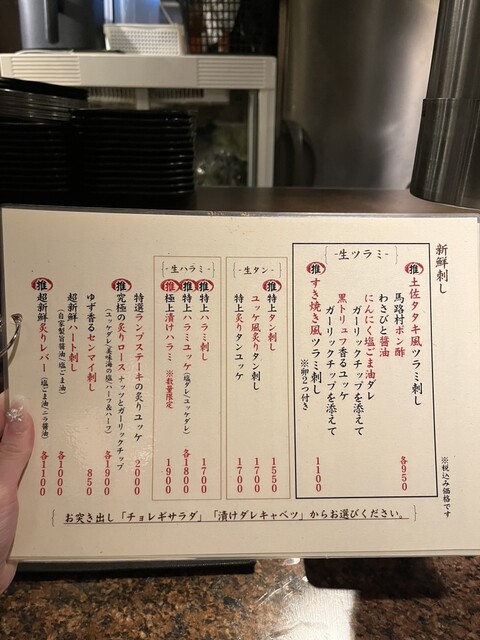 新鮮刺し
※税込み価格です
生ツラミ
推 土佐タタキ風ツラミ刺し 各950
馬路村ポン酢
わさびと醤油
にんにく塩ごま油ダレ
ガーリックチップを添えて
黒トリュフ香るユッケ
ガーリックチップを添えて
推 すき焼き風ツラミ刺し 1100
※卵2つ付き
生タン
推 特上タン刺し 1550
ユッケ風炙りタン刺し 1700
特上炙りタンユッケ 1700
生ハラミ
推 特上ハラミ刺し 1700
推 特上ハラミユッケ(塩ダレ/ユッケダレ) 各1800
推 極上漬けハラミ ※数量限定 1900
特選ランプステーキの炙りユッケ 2000
推 究極の炙りロース ナッツとガーリックチップ 各1900
(ユッケダレ/美味海の塩/ハーフ&ハーフ)
ゆず香るセンマイ刺し 850
超新鮮ハート刺し 各1000
(自家製旨醤油/塩ごま油)
推 超新鮮炙りレバー(塩ごま油/ニラ醤油) 各1100
お突き出し「チョレギサラダ」「漬けダレキャベツ」からお選びください。